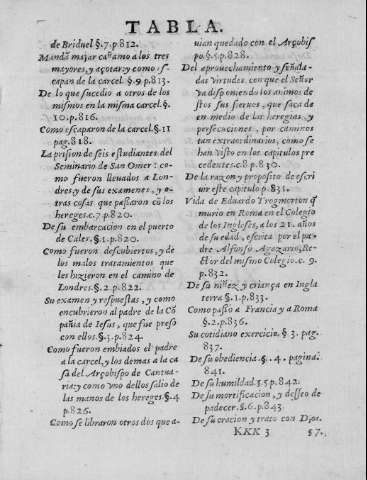 TABLA.
de Briduel §.7.p812.
Mandã majar cañamo a los tres
mayores, y açotar: y como es
capan de la carcel. §.9 p813.
De lo que sucedio a otros de los
mismos en la misma carcel. §.
10. p.816.
Como escaparon de la carcel. §.11
pag.818.
La prision de seis estudiantes del
Seminario de San Omer: co-
mo fueron lleuados a Lon-
dres, y de sus examenes, y o-
tras cosas que passaron cõ los
hereges. c.7 p.820
De su embarcacion en el puerto
de Cales. §.1. p.820.
Como fueron descubiertos, y de
los malos tratamientos que
les hizieron en el camino de
Londres. §.2. p.822.
Su examen y respuestas, y como
encubrieron al padre de la Cõ
pañia de Iesus, que fue preso
con ellos. §.3. p.824.
Como fueron embiados el padre
a la carcel, y los demas a la ca
sa del Arçobispo de Cantua-
ria: y como vno dellos salio de
las manos de los hereges. §.4
p.826.
Como se libraron otros dos que a-
uian quedado con el Arçobis
po. §.5 p.828.
Del aprouechamiento y señala-
das virtudes, con que el Señor
va disponiendo los animos de
stos sus sieruos, que saca de
en medio de las heregias, y
persecuciones, por caminos
tan extraordinarios, como se
han visto en los capitulos pre
cedentes. c.8. p.830.
De la razon y proposito de escri
uir este capitulo p.831.
Vida de Eduardo Trogmorton q̃
murio en Roma en el Colegio
de los Ingleses, a los 21. años
de su edad, escrita por el pa-
dre Alfonso Agozario, Re-
ctor del mismo Colegio. c. 9.
p.832.
De su niñez y criança en Ingla
terra §.1. p.833.
Como passo a Francia y a Roma
§.2. p.836.
Su cotidiano exercicio. §. 3. pag.
837.
De su obediencia. §. 4. pagina.
841.
De su humildad. §.5 p.842.
De su mortificacion, y desseo de
padecer. §.6. p.843.
De su oracion y trato con Dios.
KKK 3 §7.